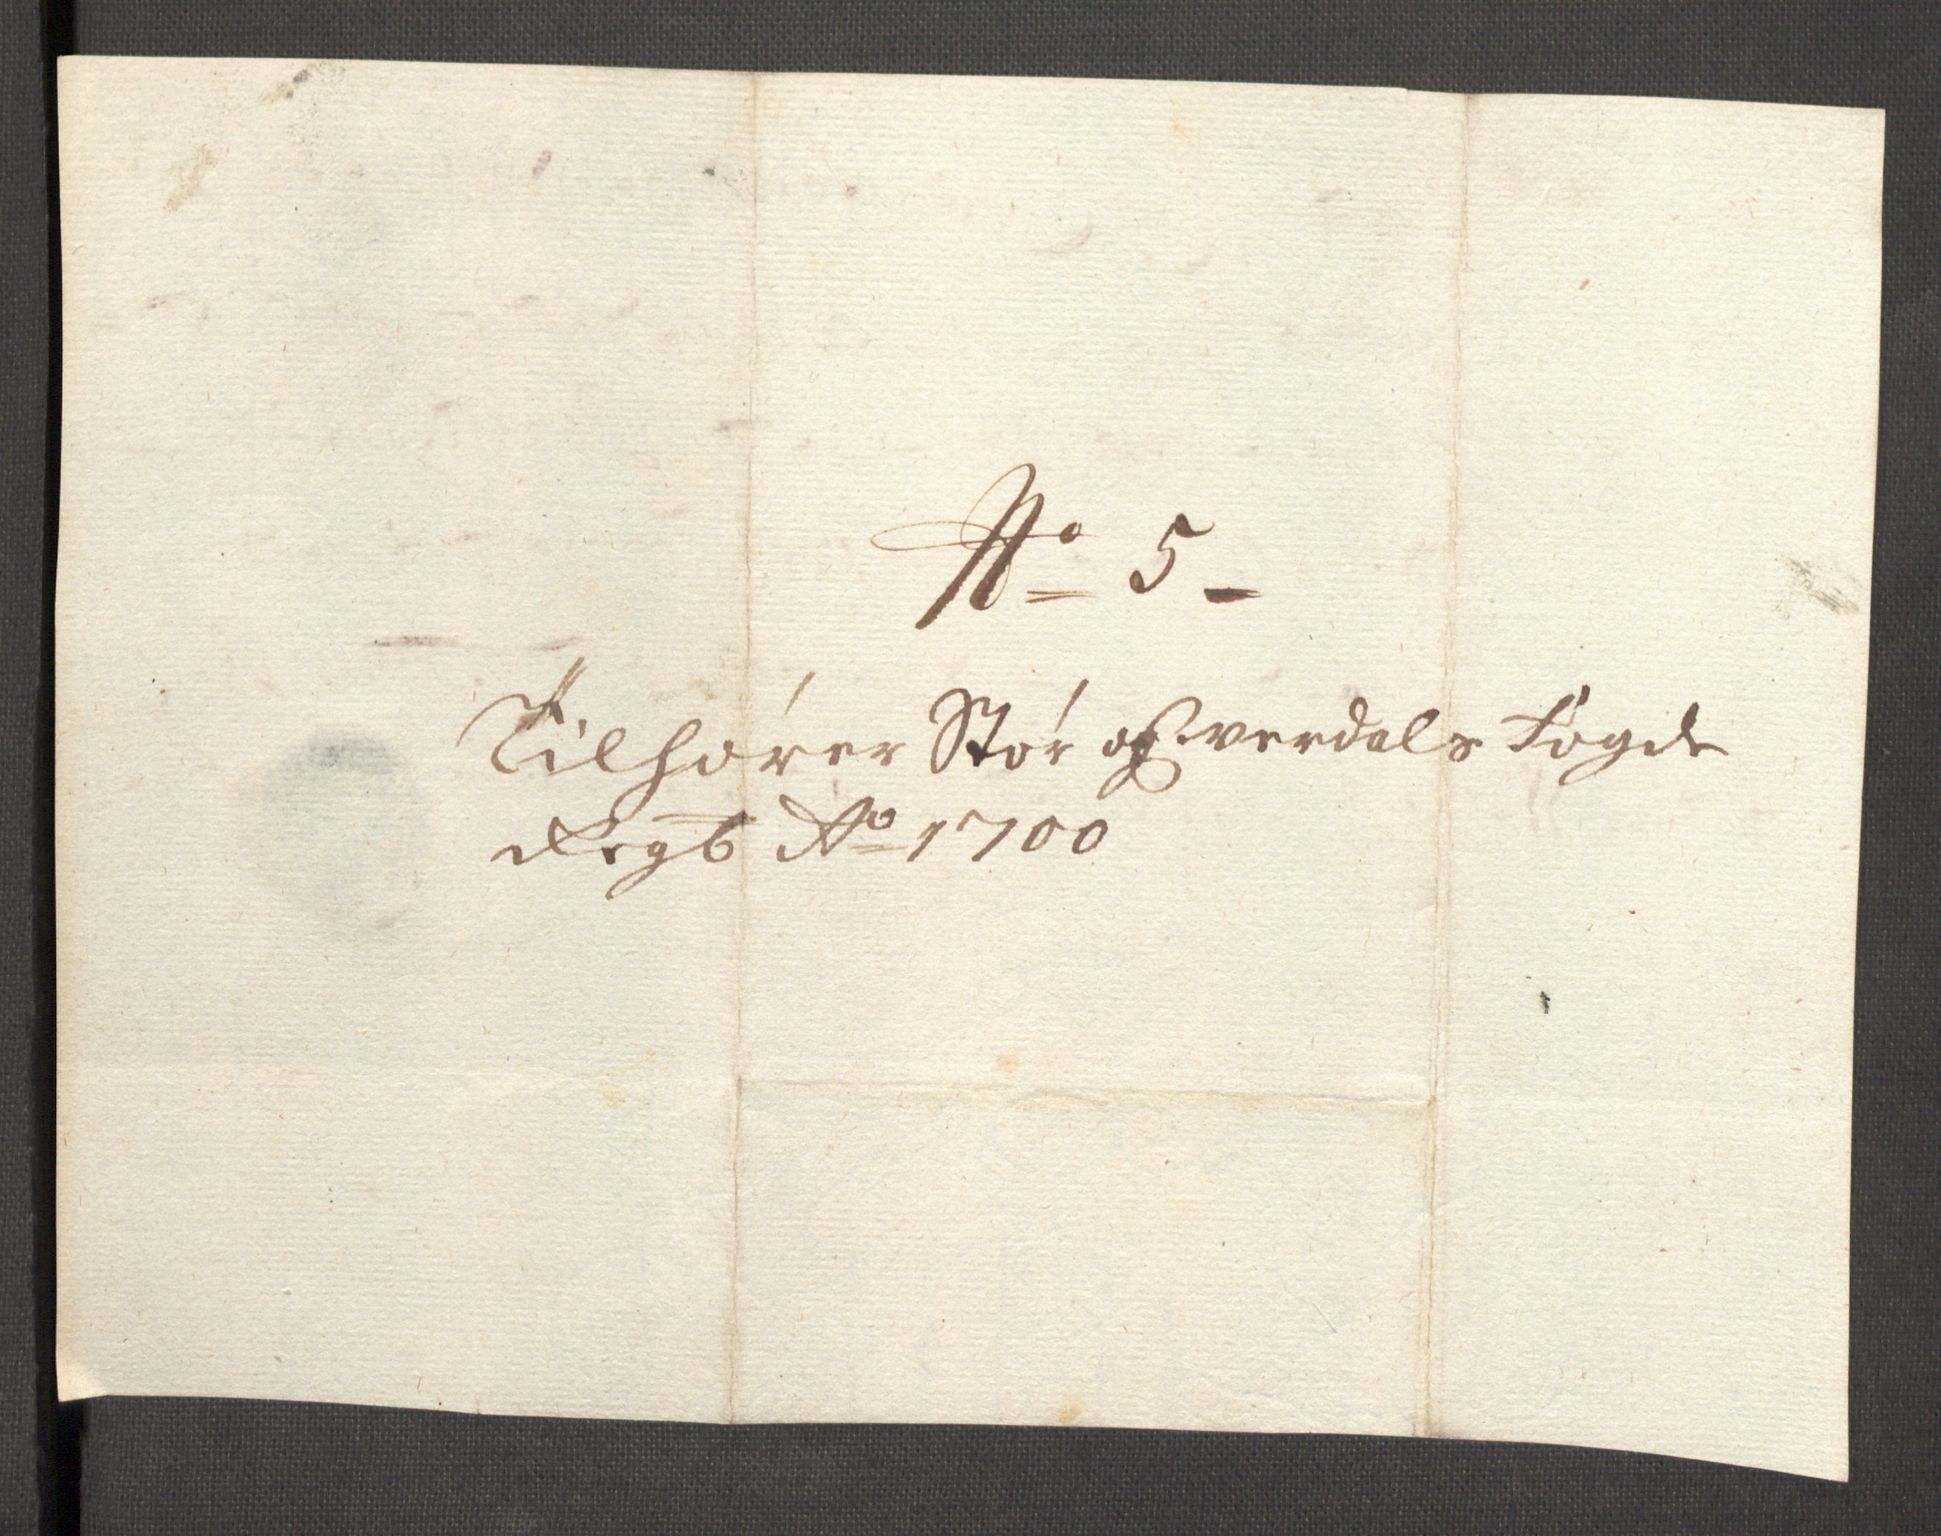 No 5 -
Tilhører Stør og Werdals Fogde
Regb Ao 1700